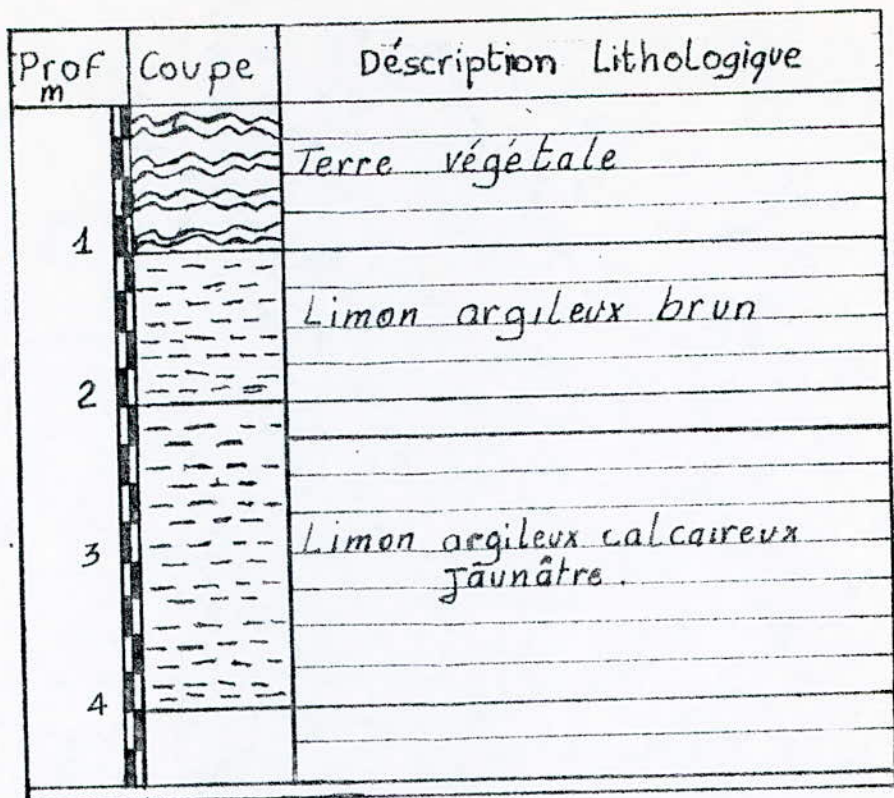 Prof Coupe Déscription Lithologique
m
Terre végétale
1
Limon argileux brun
2
3 Limon argileux calcaireux
Jaunâtre.
4